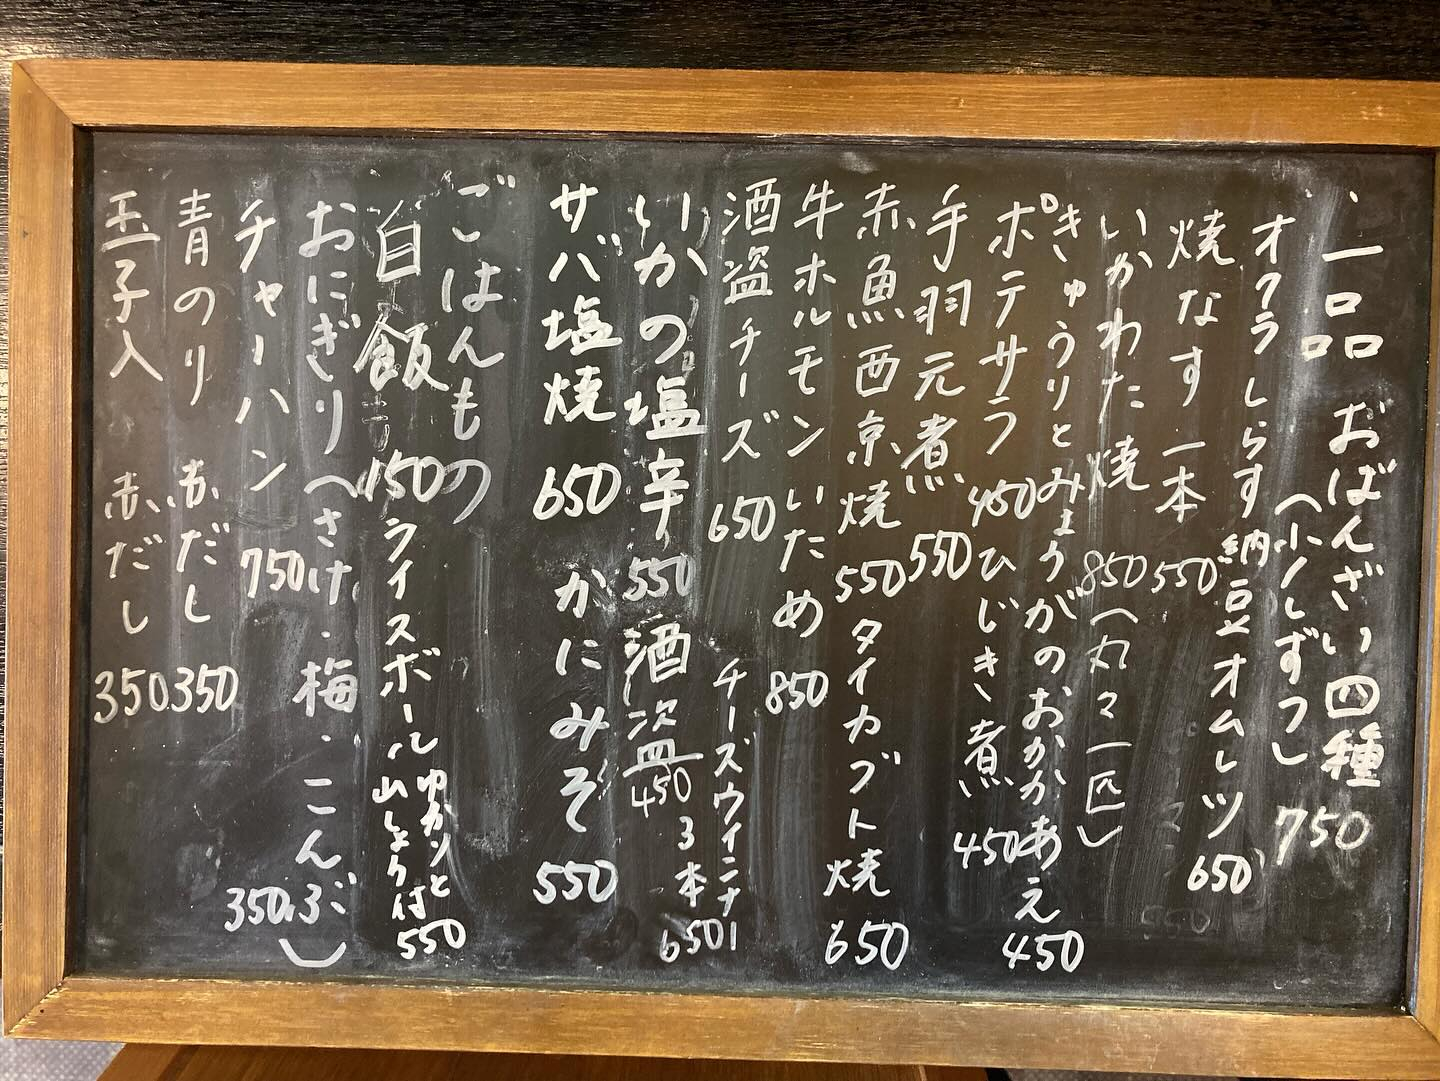 一品 おばんざい四種 750
(少しずつ)
オクラしらす納豆オムレツ 650
焼なす一本 550
いかわた焼 850 (丸々一匹)
きゅうりとみょうがのおかかあえ 450
ポテサラ 450 ひじき煮 450
手羽元煮 550
赤魚西京焼 550 タイカブト焼 650
牛ホルモンいため 850
酒盗チーズ 650 チーズウインナー
3本 650
いかの塩辛 550 酒盗 450
サバ塩焼 650 かにみそ 550
ごはんもの
白飯 150 ライスボール ゆかりと
山しょう付 550
おにぎり(さけ・梅・こんぶ)
350
チャーハン 750
青のり 赤だし 350
玉子入 赤だし 350